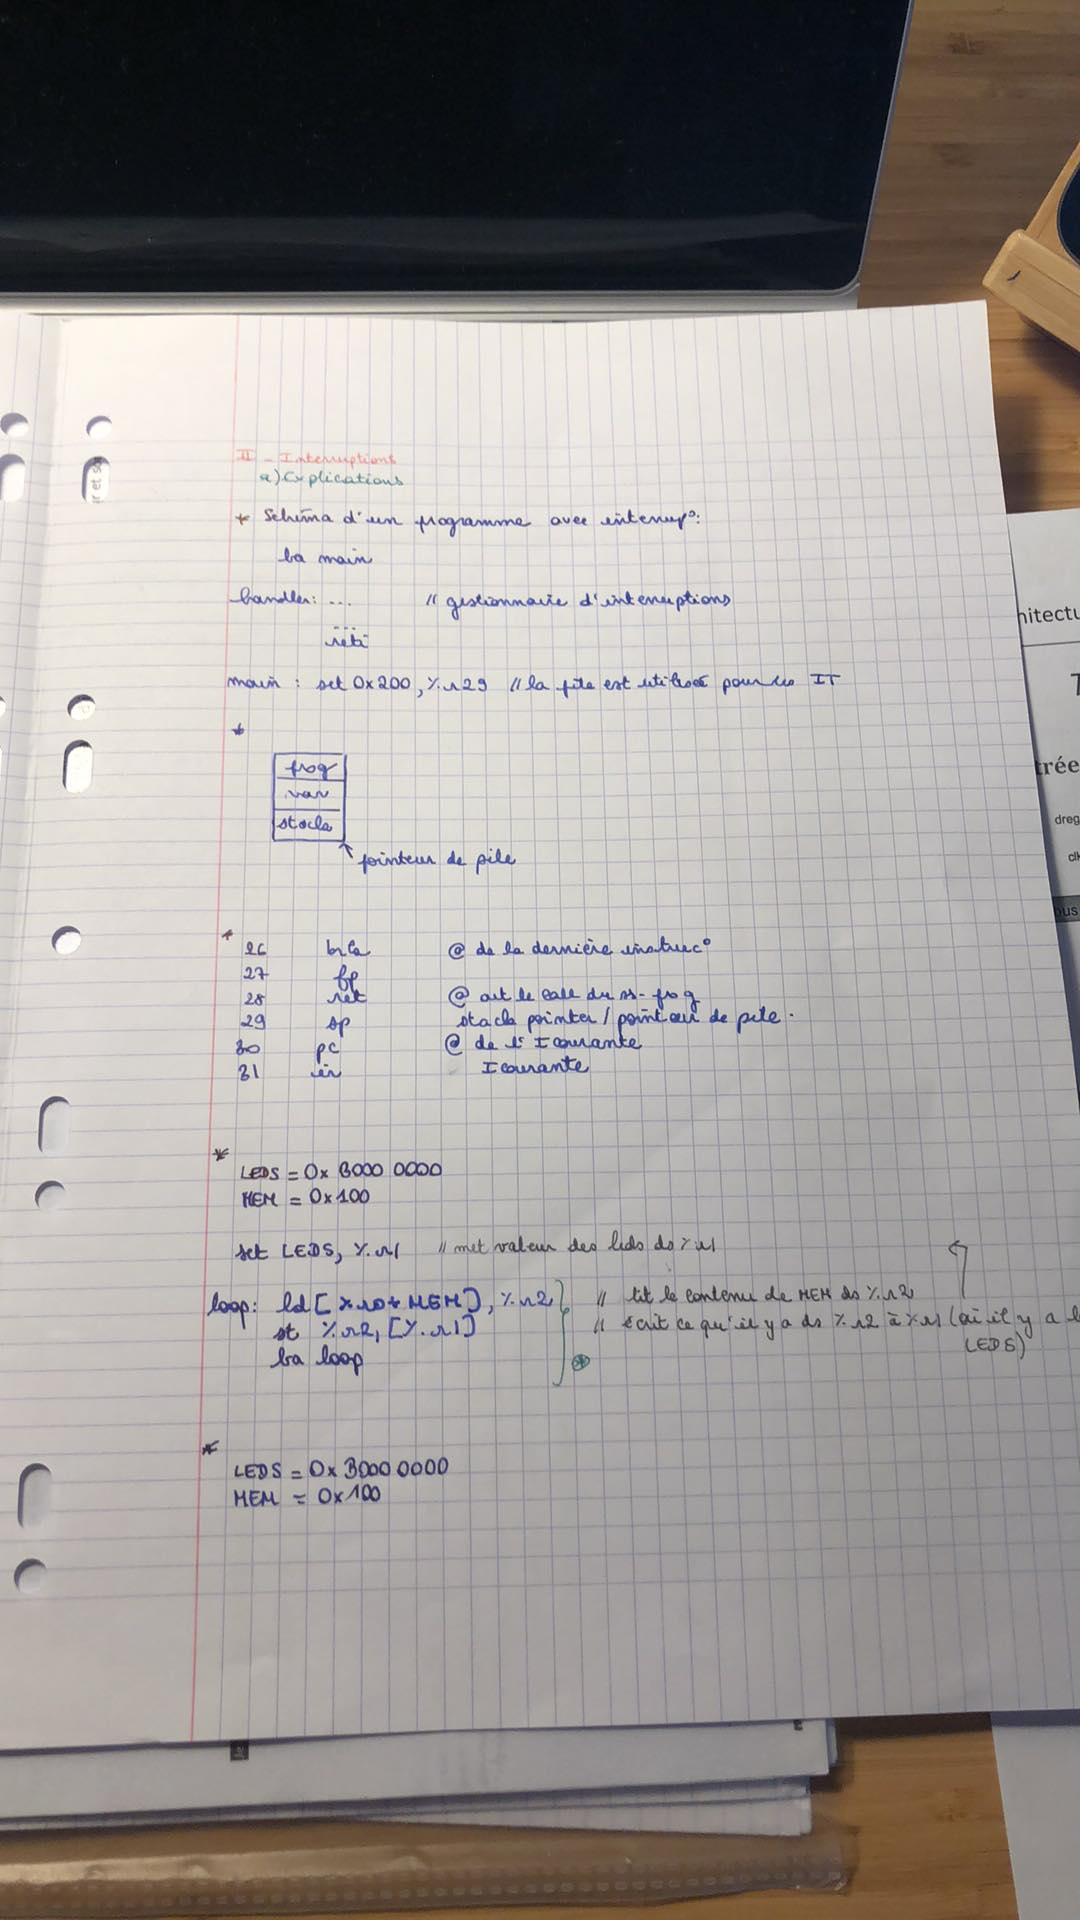 II - Interruptions
a) Explications
* Schéma d'un programme avec interrup°:
ba main
handler: ... // gestionnaire d'interruptions
...
reti
main : set 0x200, %r29 // la pile est utilisée pour les IT
*
prog
var
stack
pointeur de pile
*
26 brk @ de la dernière instruc°
27 fp
28 ret @ avt le call du ss-prog
29 sp stack pointer / pointeur de pile.
30 pc @ de l'I courante
31 ir I courante
*
LEDS = 0x B000 0000
MEM = 0x100
set LEDS, %r1 // met valeur des leds ds %r1
loop: ld [%r0+MEM], %r2 // lit le contenu de MEM ds %r2
st %r2, [%r1] // écrit ce qu'il y a ds %r2 à %r1 (où il y a
ba loop
LEDS)
*
LEDS = 0x B000 0000
MEM = 0x100
r et s
hitectu
T
trée
dreg
clk
bus